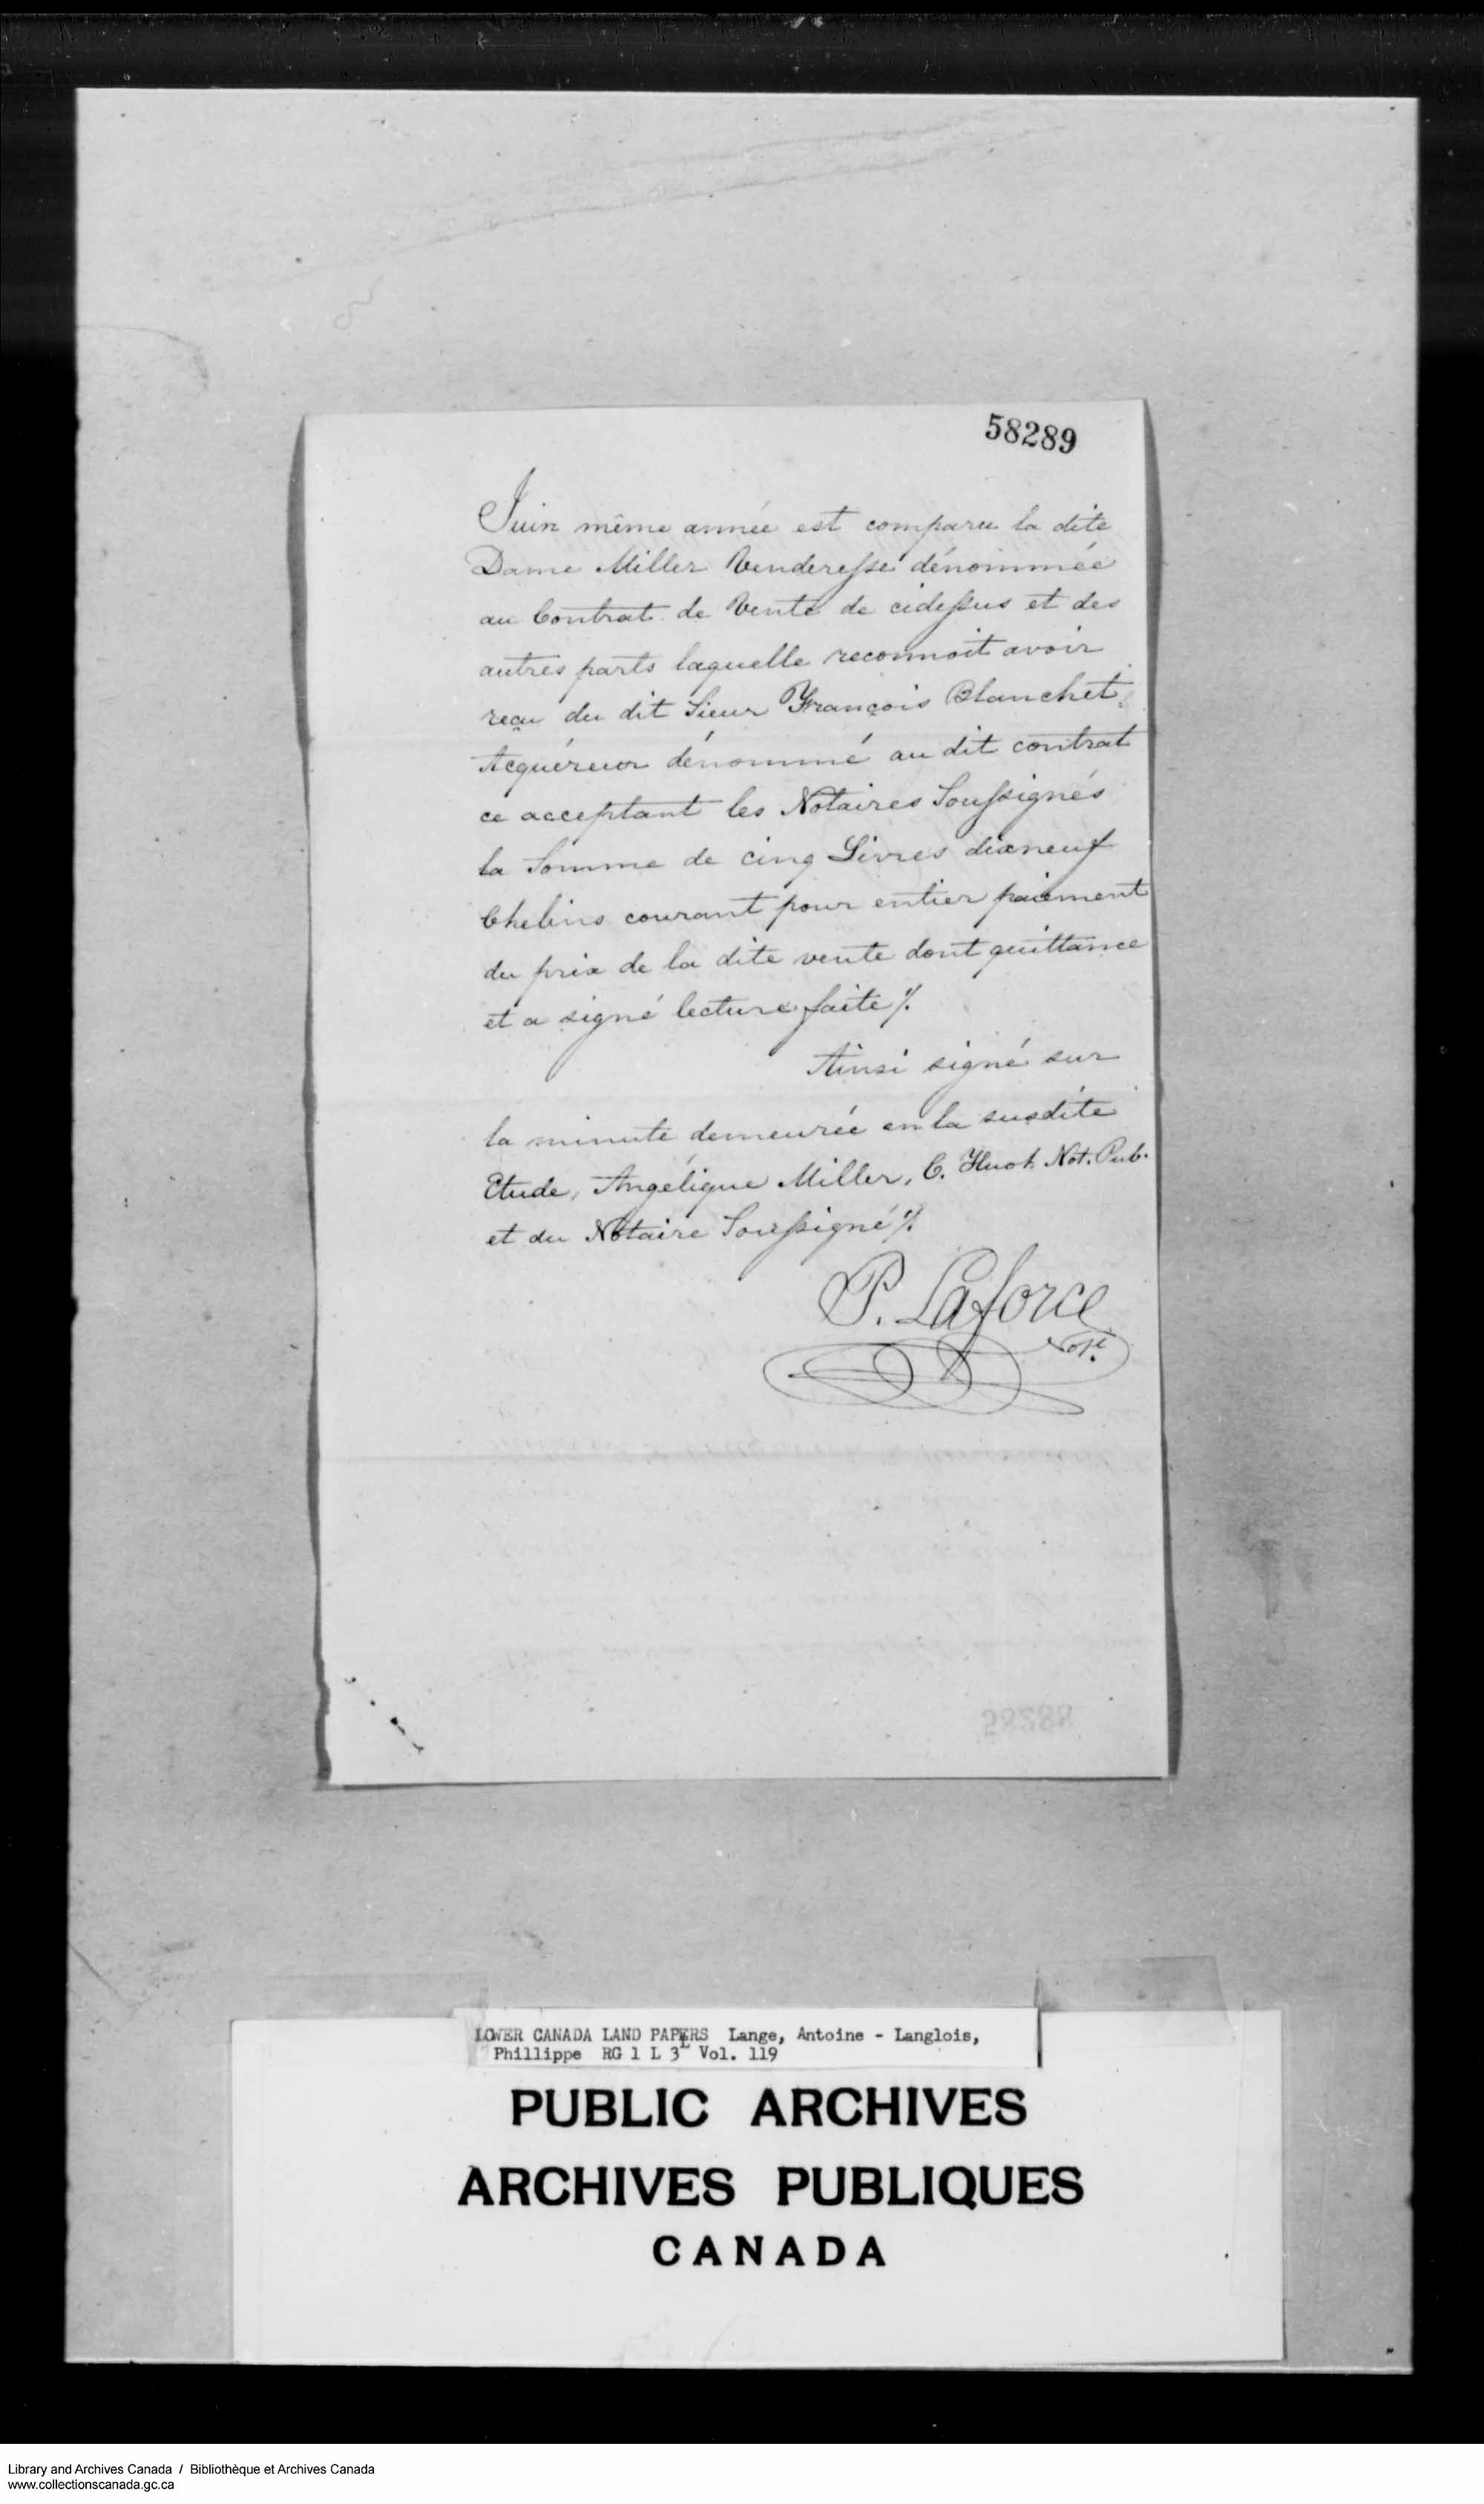 58289
Juin même année est comparu la dite
Dame Miller Venderesse dénommée
au Contrat de Vente de cidessus et des
autres parts laquelle reconnoit avoir
reçu du dit Sieur François Blanchet
Acquéreur dénommé au dit contrat
ce acceptant les Notaires Soussignés
la Somme de cinq Livres dixneuf
Chelins courant pour entier paiement
du prix de la dite vente dont quittance
et a signé lecture faite ./.
Ainsi signé sur
la minute demeurée en la susdite
Etude, Angélique Miller, C. Huot Not. Pub.
et du Notaire Soussigné ./.
P. Laforce
Not.
58288
LOWER CANADA LAND PAPERS Lange, Antoine - Langlois,
Phillippe RG 1 L 3L Vol. 119
PUBLIC ARCHIVES
ARCHIVES PUBLIQUES
CANADA
Library and Archives Canada / Bibliothèque et Archives Canada
www.collectionscanada.gc.ca